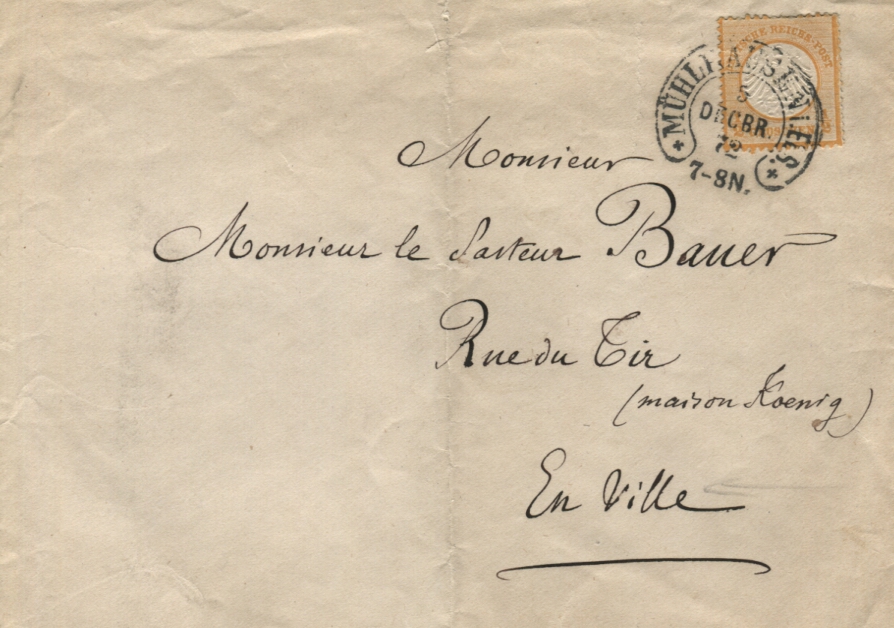 MÜHLHAUSEN i. ELS.
5
DECBR.
72
7-8N.
Monsieur
Monsieur le Pasteur Bauer
Rue du Tir
(maison Koenig)
En Ville